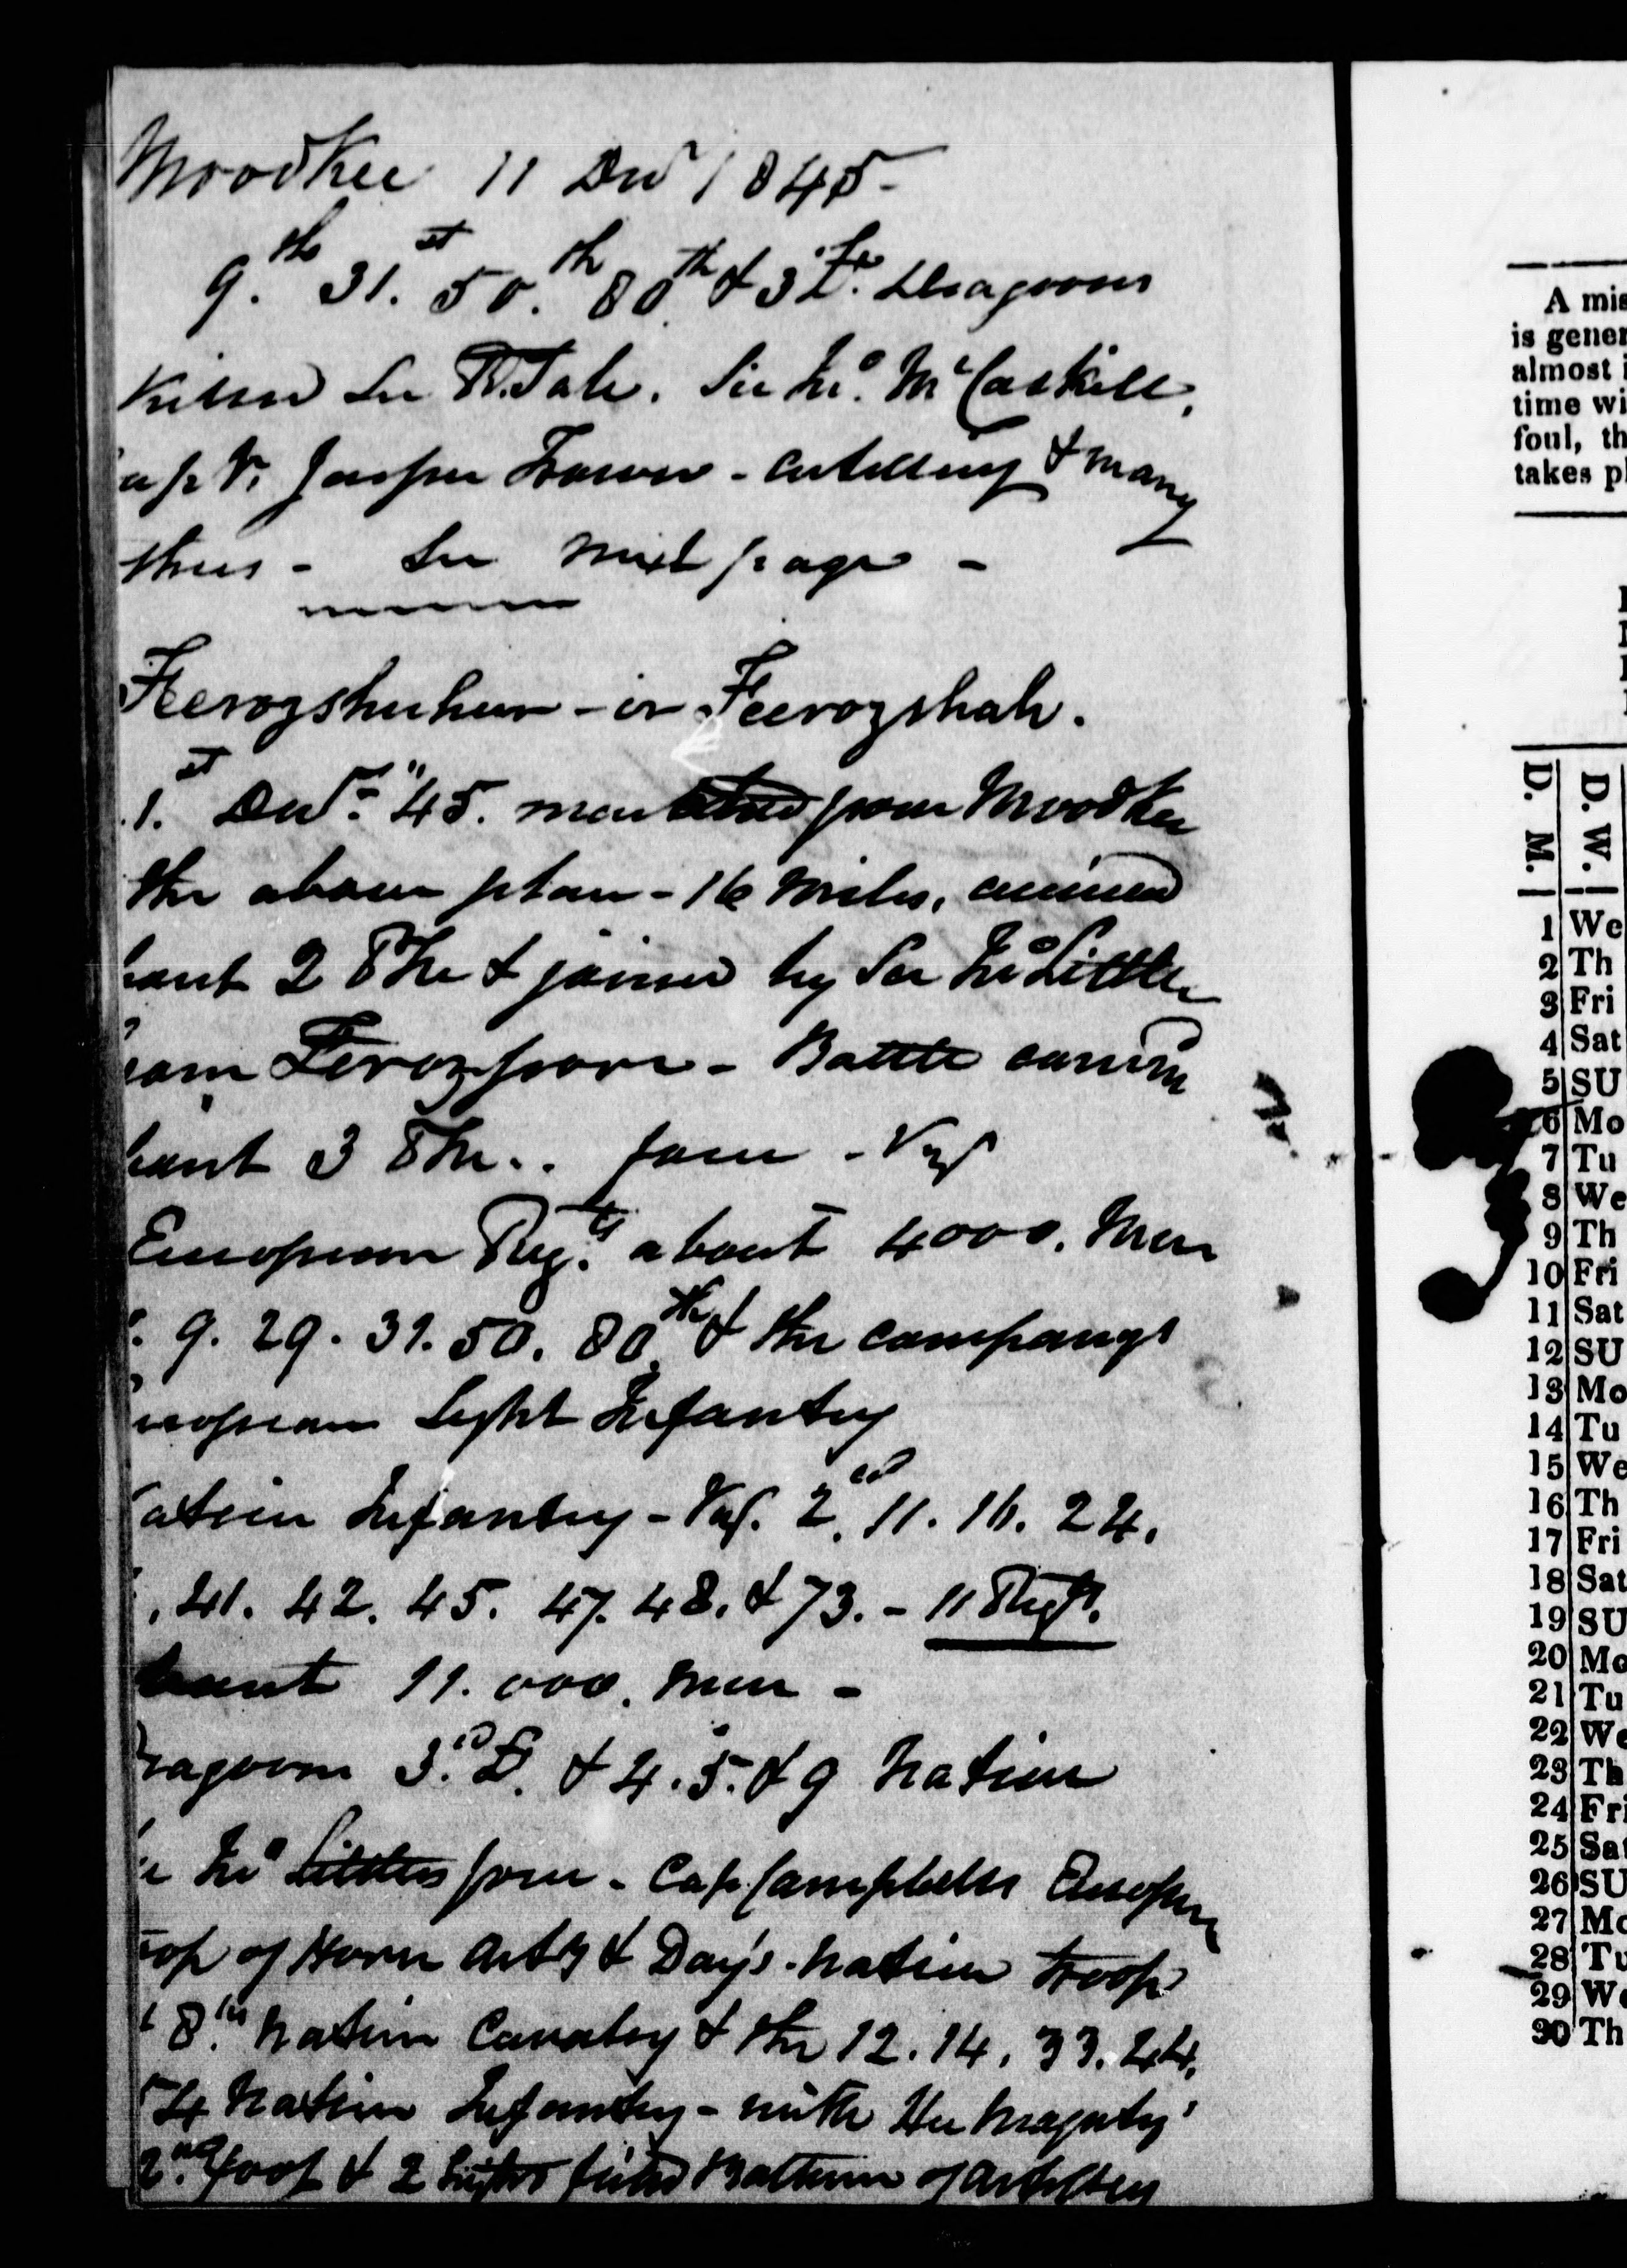 Moodkee 11 Decr 1845-
9.th 31.st 50.th 80.th & 3d Lt. Dragoons
Killed Sir R. Sale. Sir Jno. McCaskill,
apt. Jasper Trower - artillery & many
thers - See next page -
Feerozshuhur - or Feerozshah.
1.st Decr. "45. marched from Moodkee
the above place - 16 miles, arrived
bout 2 P.M. & joined by Sir Jno Littler
from Ferozpoor - Battle comm
bout 3 P.M.. force - Viz
European Regts. about 4000. Men
: 9. 29. 31. 50. 80th & the companys
uropean Light Infantry
ative Infantry - Viz. 2.nd 11. 16. 24.
, 41. 42. 45. 47. 48. & 73. - 11 Regts.
bout 11.000. men -
ragoons 3.d L. & 4. 5. & 9 Native
Jno Littlers force - Cap Campbells European
oop of Horse Arty & Day's Native troop
8.th Native Cavalry & the 12. 14. 33. 44.
54 Native Infantry - with Her Majesty's
2.nd foot & 2 Light field Batteries of Artillery
A mis
is gener
almost i
time wi
foul, th
takes pl
D. M. D. W.
1 We
2 Th
3 Fri
4 Sat
5 SU
6 Mo
7 Tu
8 We
9 Th
10 Fri
11 Sat
12 SU
13 Mo
14 Tu
15 We
16 Th
17 Fri
18 Sat
19 SU
20 Mo
21 Tu
22 We
23 Th
24 Fri
25 Sat
26 SU
27 Mo
28 Tu
29 We
30 Th